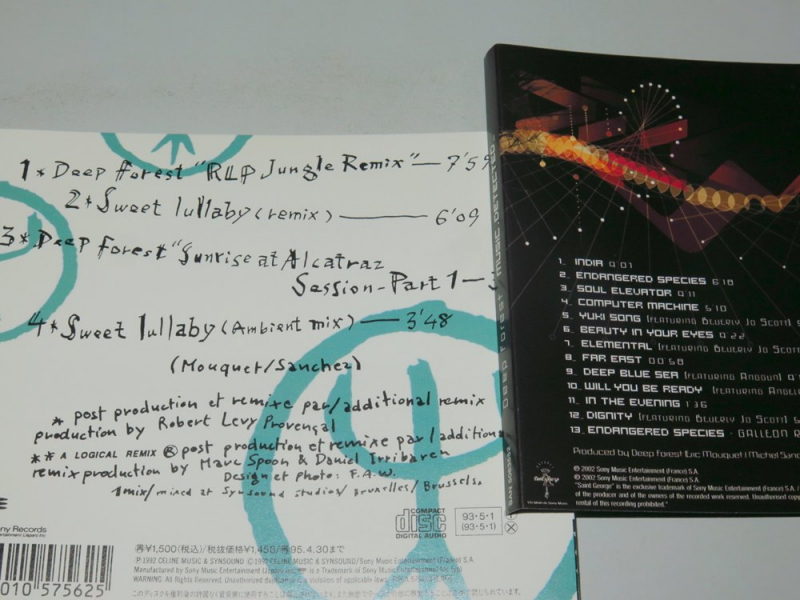 1* Deep forest "RLP Jungle Remix" — 7'59
2* Sweet lullaby (remix) — 6'09
3* Deep forest "Sunrise at Alcatraz
Session-Part 1—
4* Sweet lullaby (Ambient mix) — 3'48
(Mouquet/Sanchez)
* post production et remixe par/additional remix
production by Robert Levy Provençal
** A LOGICAL REMIX ® post production et remixe par / addition
remix production by Marc Spoon & Daniel Irribaren
Design et photo: F.A.W.
1mix/mixed at Synsound studios/Bruxelles/Brussels.
COMPACT
disc
DIGITAL AUDIO
93・5・1
(93・5・1)
ny Records
010 575625
¥1,500(税込)/税抜価格¥1,456/ 95.4.30まで
℗ 1992 CELINE MUSIC & SYNSOUND/© 1992 CELINE MUSIC & SYNSOUND/Sony Music Entertainment (France) S.A.
WARNING: All Rights Reserved. Unauthorized duplication is a violation of applicable laws.
Deep Forest MUSIC DETECTED
1. INDIA 9 01
2. ENDANGERED SPECIES 6 18
3. SOUL ELEVATOR 9 11
4. COMPUTER MACHINE 5 10
5. YUKI SONG (FEATURING Beverly Jo Scott)
6. BEAUTY IN YOUR EYES 9 22
7. ELEMENTAL (FEATURING Beverly Jo Scott
8. FAR EAST 00 58
9. DEEP BLUE SEA (FEATURING Anggun)
10. WILL YOU BE READY (FEATURING
11. IN THE EVENING 1 36
12. DIGNITY (FEATURING Beverly Jo Scott)
13. ENDANGERED SPECIES - GALLEON R
Produced by Deep Forest Eric Mouquet / Michel San
℗ 2002 Sony Music Entertainment (France) S.A.
© 2002 Sony Music Entertainment (France) S.A. /
"Saint George" is the exclusive trademark of Sony Music Entertainment (France) S.A.
of the producer and of the owners of the recorded work reserved. Unauthorised copy
rental of this recording prohibited."